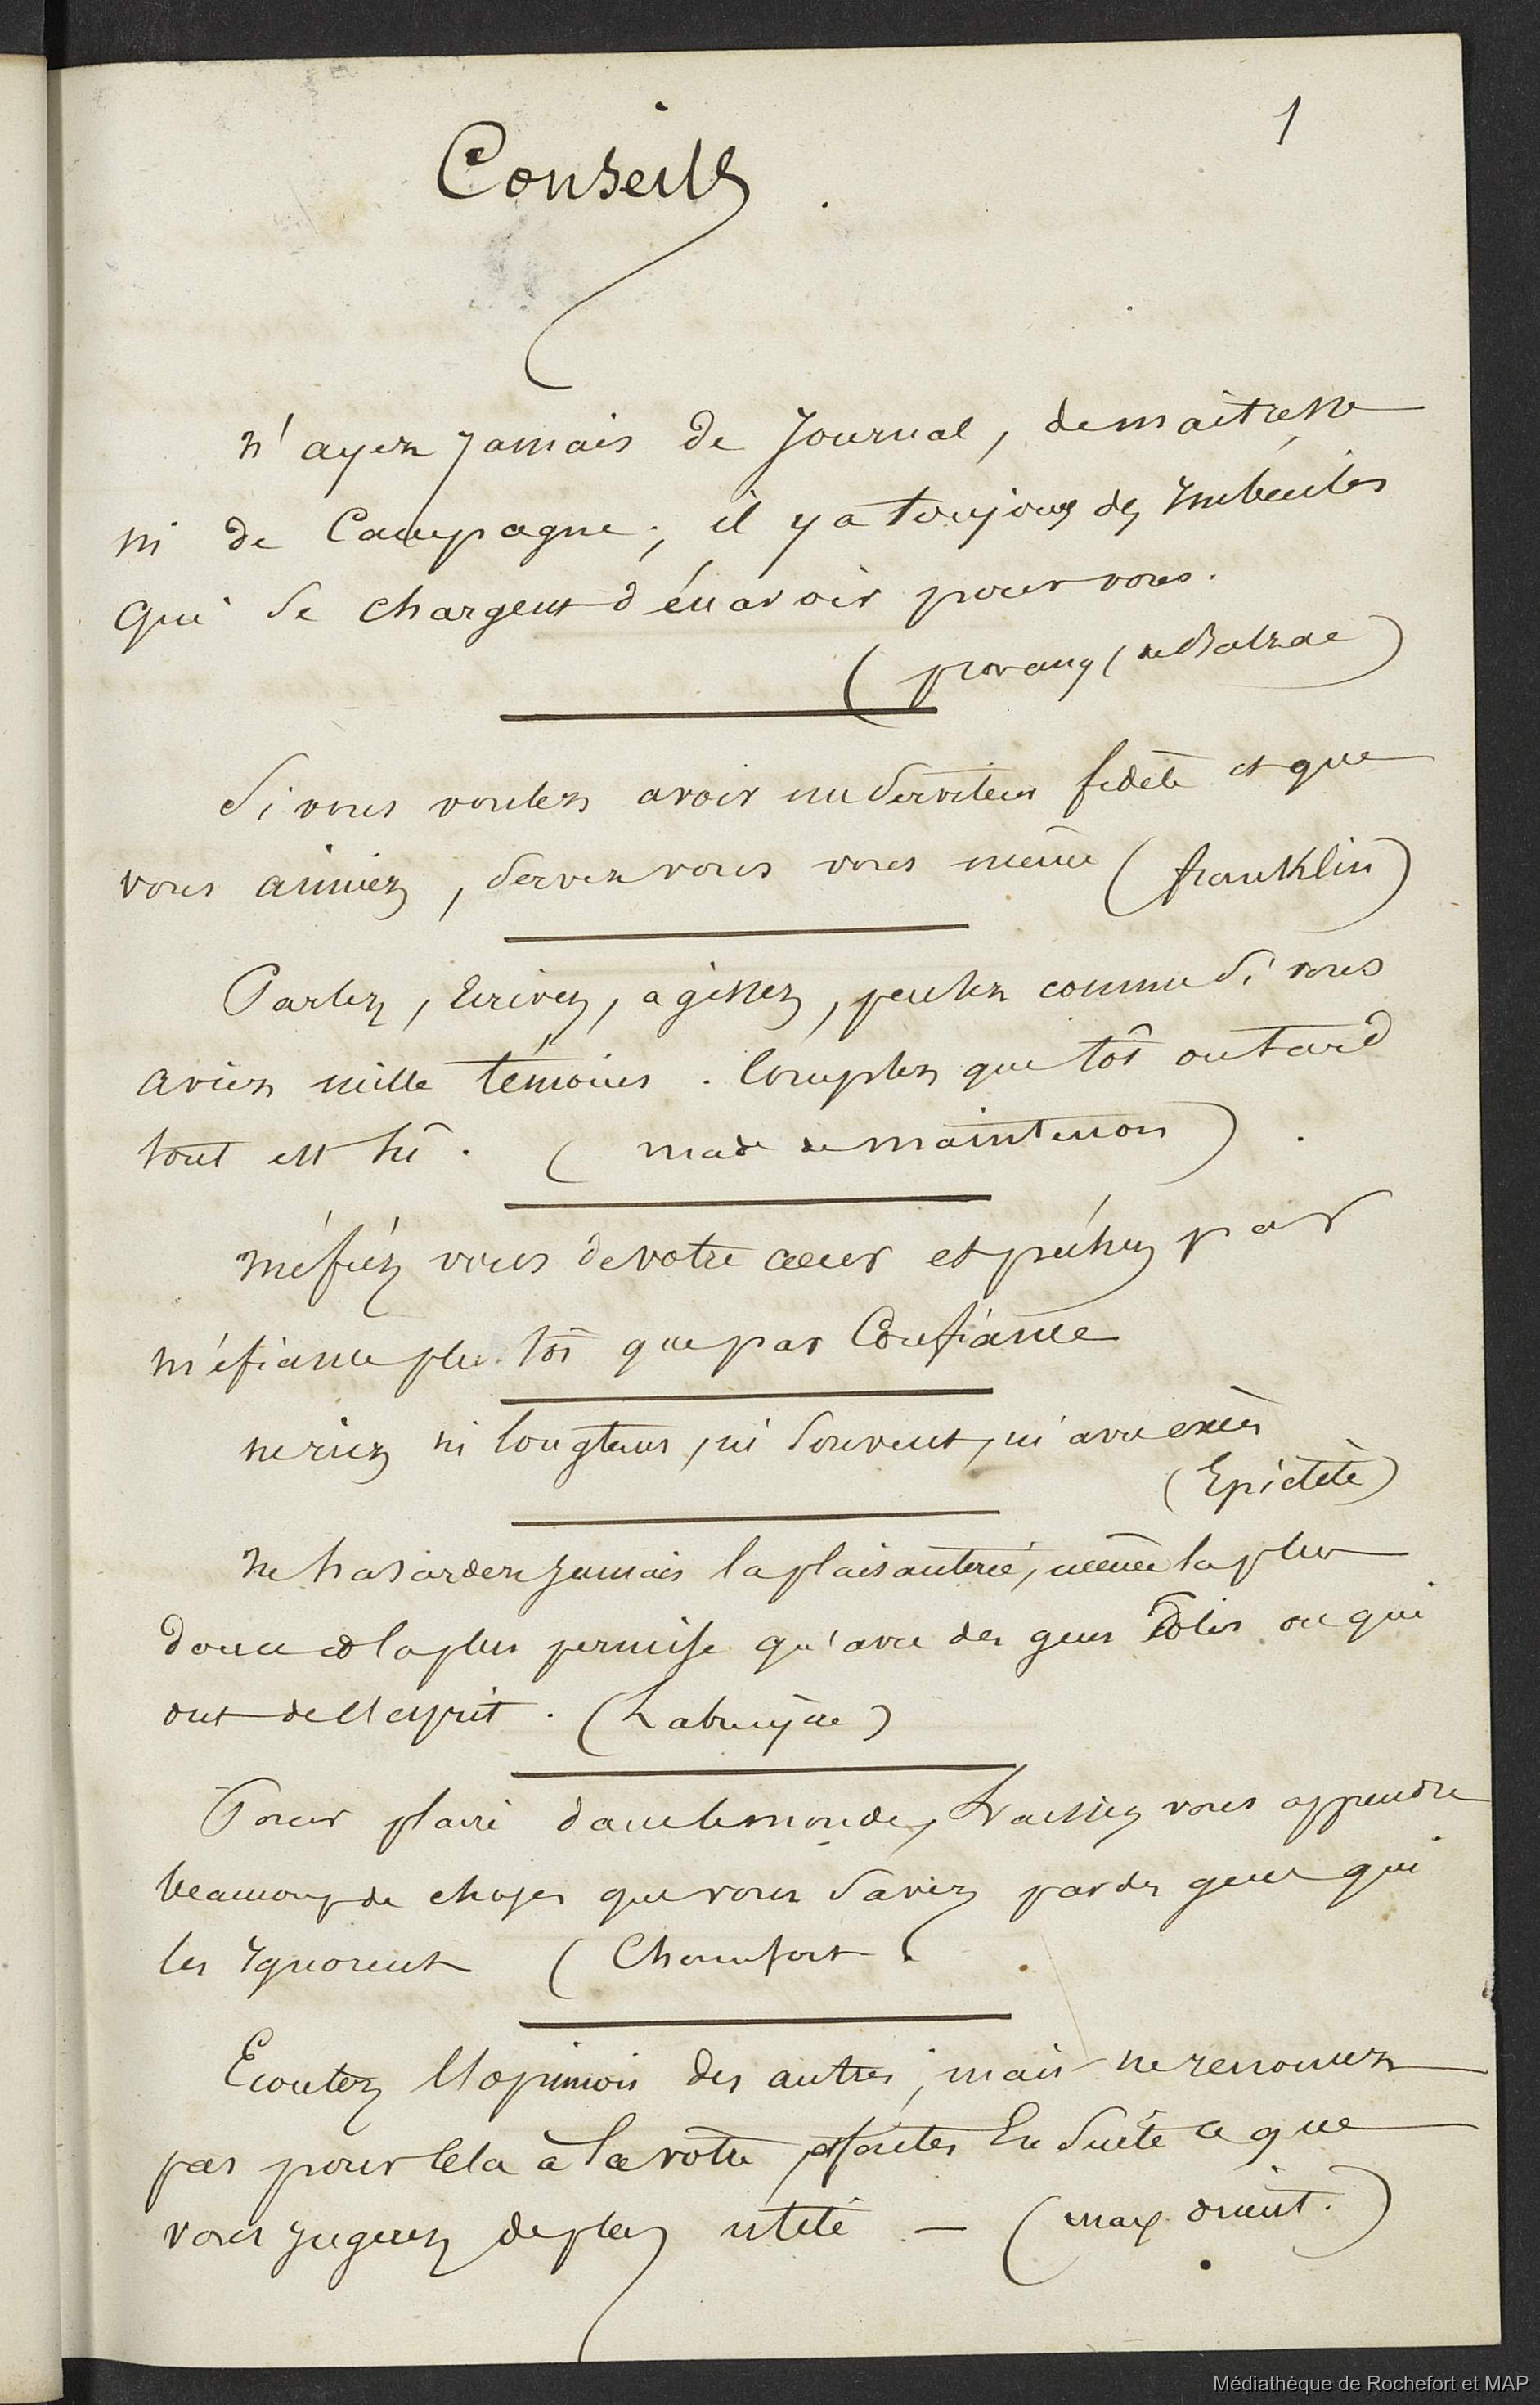 1
Conseils.
n'ayez jamais de Journal, de maitresse
ni de Campagne; il y a toujours des imbeciles
qui se chargent d'én avoir pour vous.
( de Balzac )
Si vous voulez avoir un serviteur fidèle et que
vous aimiez, servez vous vous même ( franklin )
Parlez, Ecrivez, agissez, pensez comme si vous
aviez mille témoins. Comptez que tôt ou tard
tout est sû. ( made de maintenon ).
méfiéz vous de votre cœur et péchez par
méfiance plu tôt que par Confiance
ne riez ni longtems, ni souvent, ni avec excès
( Epictète )
Ne hasardez jamais la plaisanterie, même la plus
douce et la plus permise qu'avec des gens Polis ou qui
ont de l'esprit. ( Labruyère )
Pour plaire dans le monde, laissez vous apprendre
beaucoup de choses que vous savez par des gens qui
les ignorent ( Chamfort.
Ecoutez l'opinion des autres; mais ne renoncez
pas pour cela à la votre, et faites Ensuite ce que
vous jugerez de plus utile — ( max. orient. )
Médiathèque de Rochefort et MAP